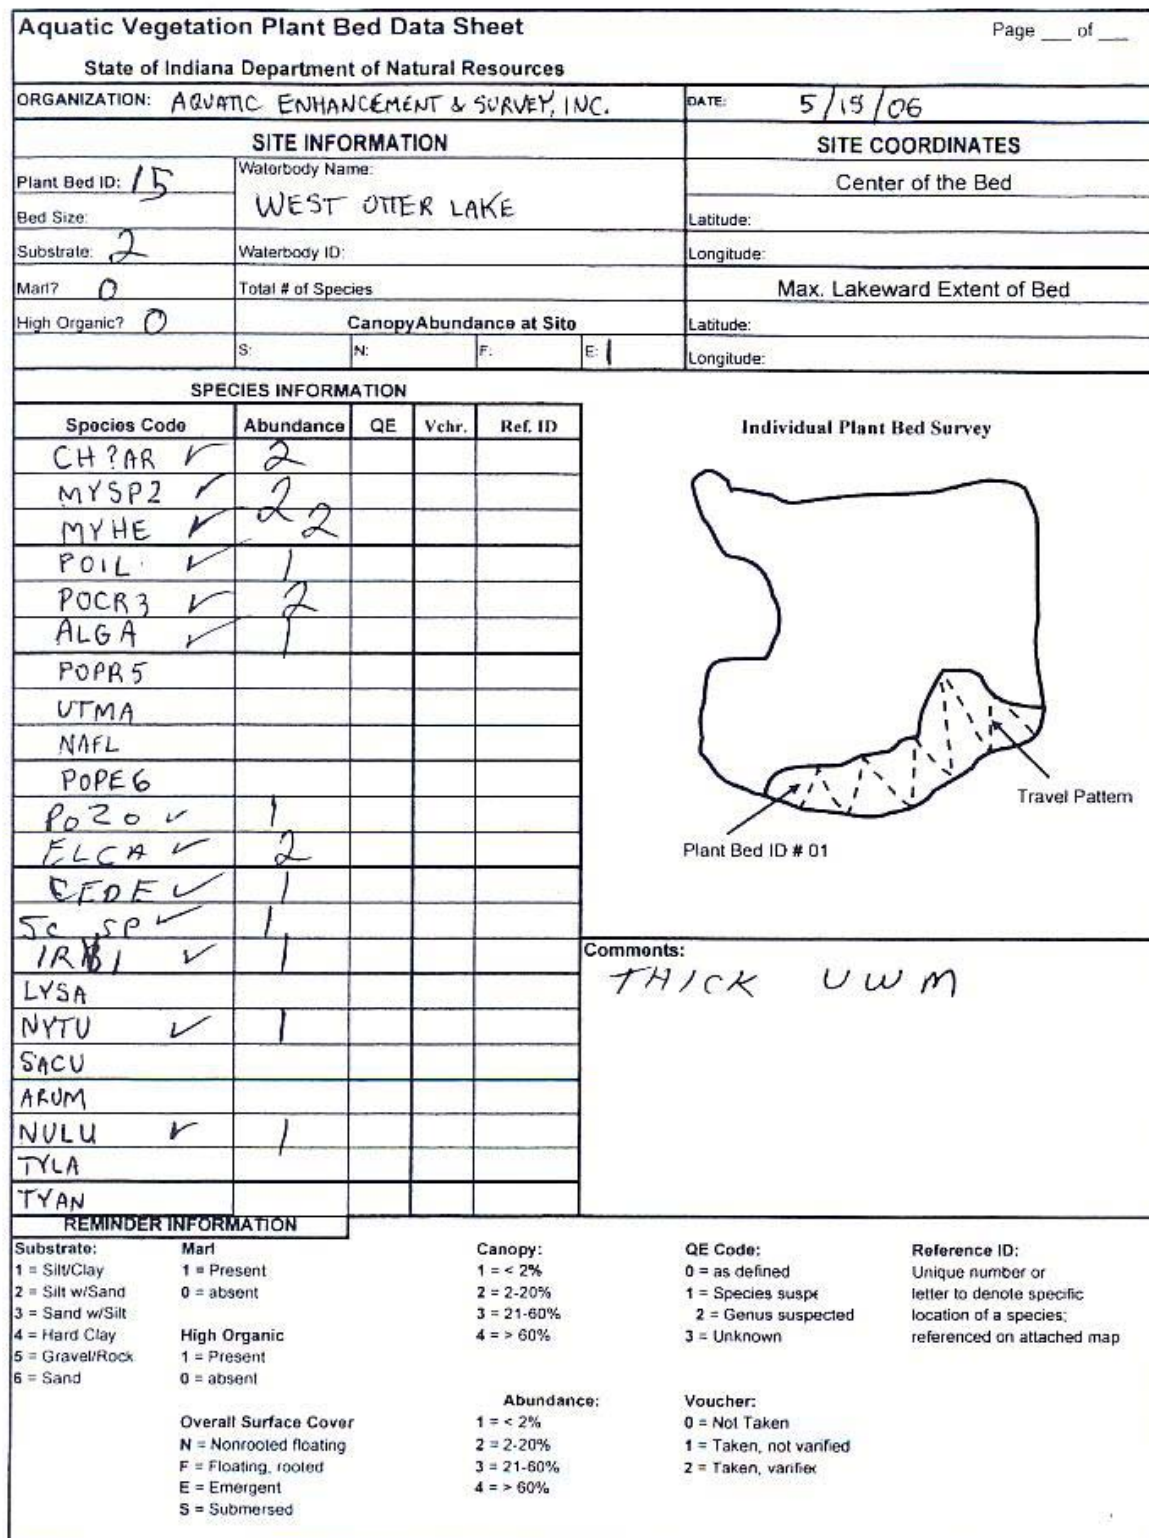 Aquatic Vegetation Plant Bed Data Sheet
Page ___ of ___
State of Indiana Department of Natural Resources
ORGANIZATION: AQUATIC ENHANCEMENT & SURVEY, INC.
DATE: 5/15/06
SITE INFORMATION
SITE COORDINATES
Plant Bed ID: 15
Waterbody Name:
WEST OTTER LAKE
Center of the Bed
Bed Size:
Latitude:
Substrate: 2
Waterbody ID:
Longitude:
Marl? 0
Total # of Species
Max. Lakeward Extent of Bed
High Organic? 0
CanopyAbundance at Site
Latitude:
S: N: F: E: 1
Longitude:
SPECIES INFORMATION
Species Code Abundance QE Vchr. Ref. ID
Individual Plant Bed Survey
CH?AR ✓ 2
MYSP2 ✓ 2
MYHE ✓ 2
POIL ✓ 1
POCR3 ✓ 2
ALGA ✓ 1
POPR5
UTMA
NAFL
POPE6
POZO ✓ 1
ELCA ✓ 2
CEDE ✓ 1
SC SP ✓ 1
✓ 1
LYSA
NYTU ✓ 1
SACU
ARUM
NULU ✓ 1
TYLA
TYAN
Travel Pattern
Plant Bed ID # 01
Comments:
THICK UWM
REMINDER INFORMATION
Substrate:
1 = Silt/Clay
2 = Silt w/Sand
3 = Sand w/Silt
4 = Hard Clay
5 = Gravel/Rock
6 = Sand
Marl
1 = Present
0 = absent
High Organic
1 = Present
0 = absent
Overall Surface Cover
N = Nonrooted floating
F = Floating, rooted
E = Emergent
S = Submersed
Canopy:
1 = < 2%
2 = 2-20%
3 = 21-60%
4 = > 60%
Abundance:
1 = < 2%
2 = 2-20%
3 = 21-60%
4 = > 60%
QE Code:
0 = as defined
1 = Species suspe
2 = Genus suspected
3 = Unknown
Voucher:
0 = Not Taken
1 = Taken, not varified
2 = Taken, varifie
Reference ID:
Unique number or
letter to denote specific
location of a species;
referenced on attached map